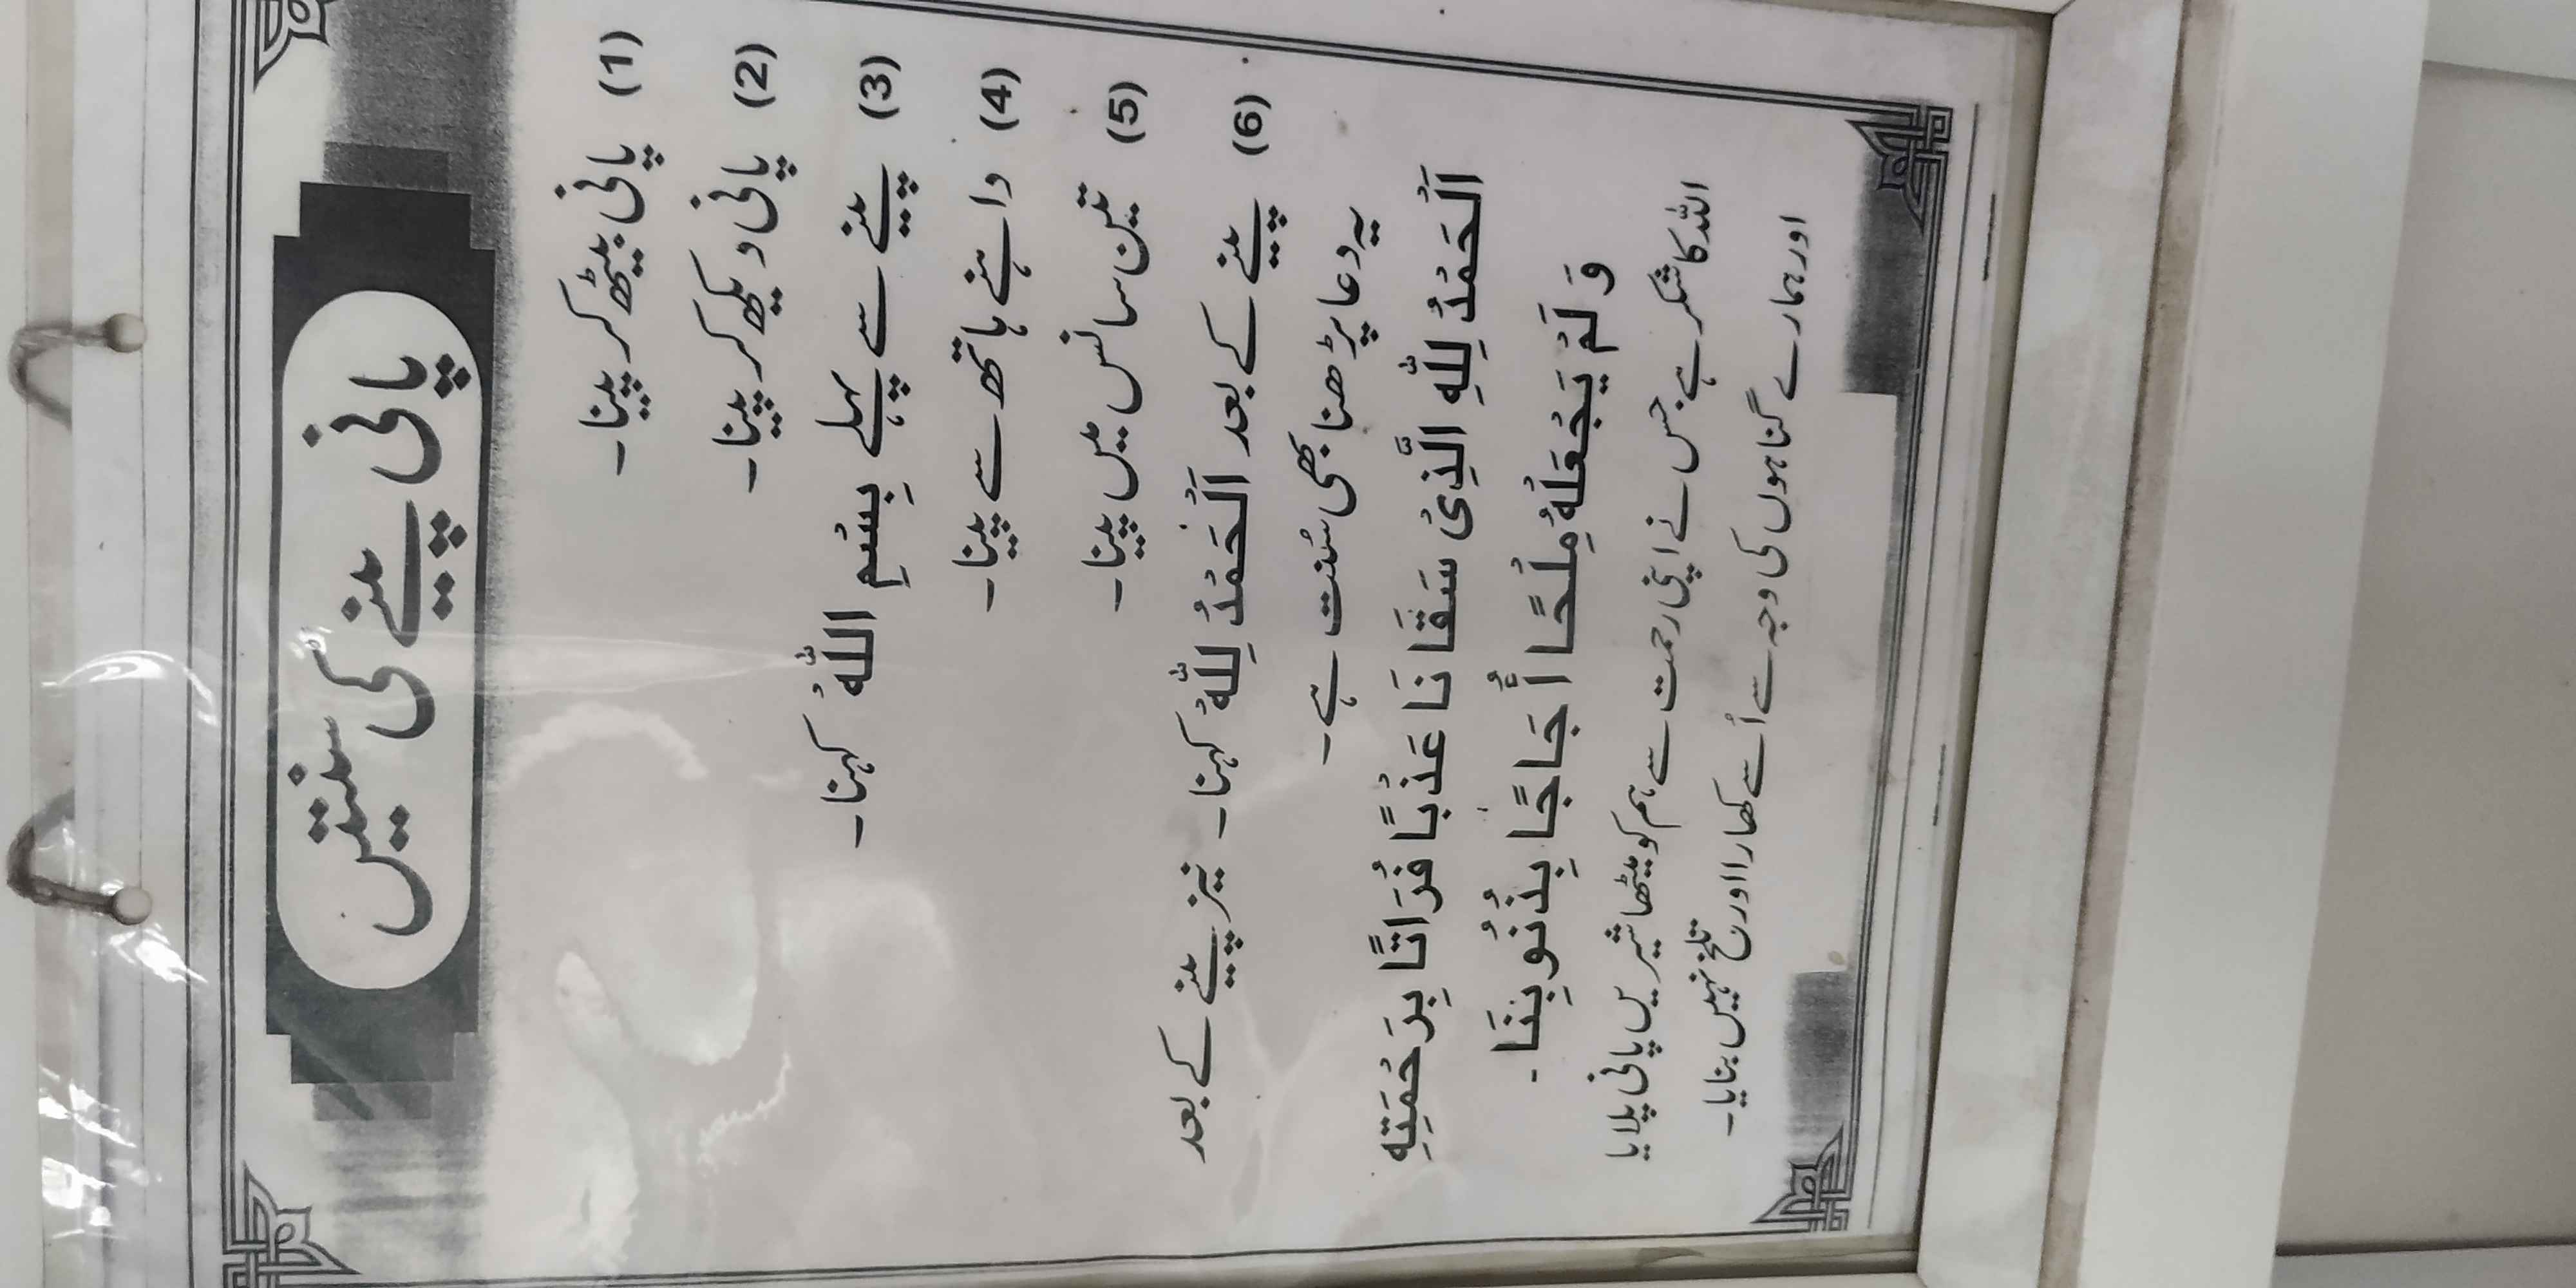 پانی پینے کی سنتیں
(1) پانی بیٹھ کر پینا۔
(2) پانی دیکھ کر پینا۔
(3) پینے سے پہلے بِسْمِ اللّٰهُ کہنا۔
(4) داہنے ہاتھ سے پینا۔
(5) تین سانس میں پینا۔
(6) پینے کے بعد اَلْحَمْدُ لِلّٰهُ کہنا۔ نیز پینے کے بعد
یہ دعا پڑھنا بھی سُنت ہے۔
اَلْحَمْدُ لِلّٰهِ الَّذِىْ سَقَا نَا عَذْبًا فُرَاتًا بِرَحْمَتِهِ
وَ لَمْ يَجْعَلْهُ مِلْحًا أُجَاجًا بِذُنُوْبِنَا۔
اللہ کا شکر ہے جس نے اپنی رحمت سے ہم کو میٹھا شیریں پانی پلایا
اور ہمارے گناہوں کی وجہ سے اُسے کھارا اور تلخ نہیں بنایا۔